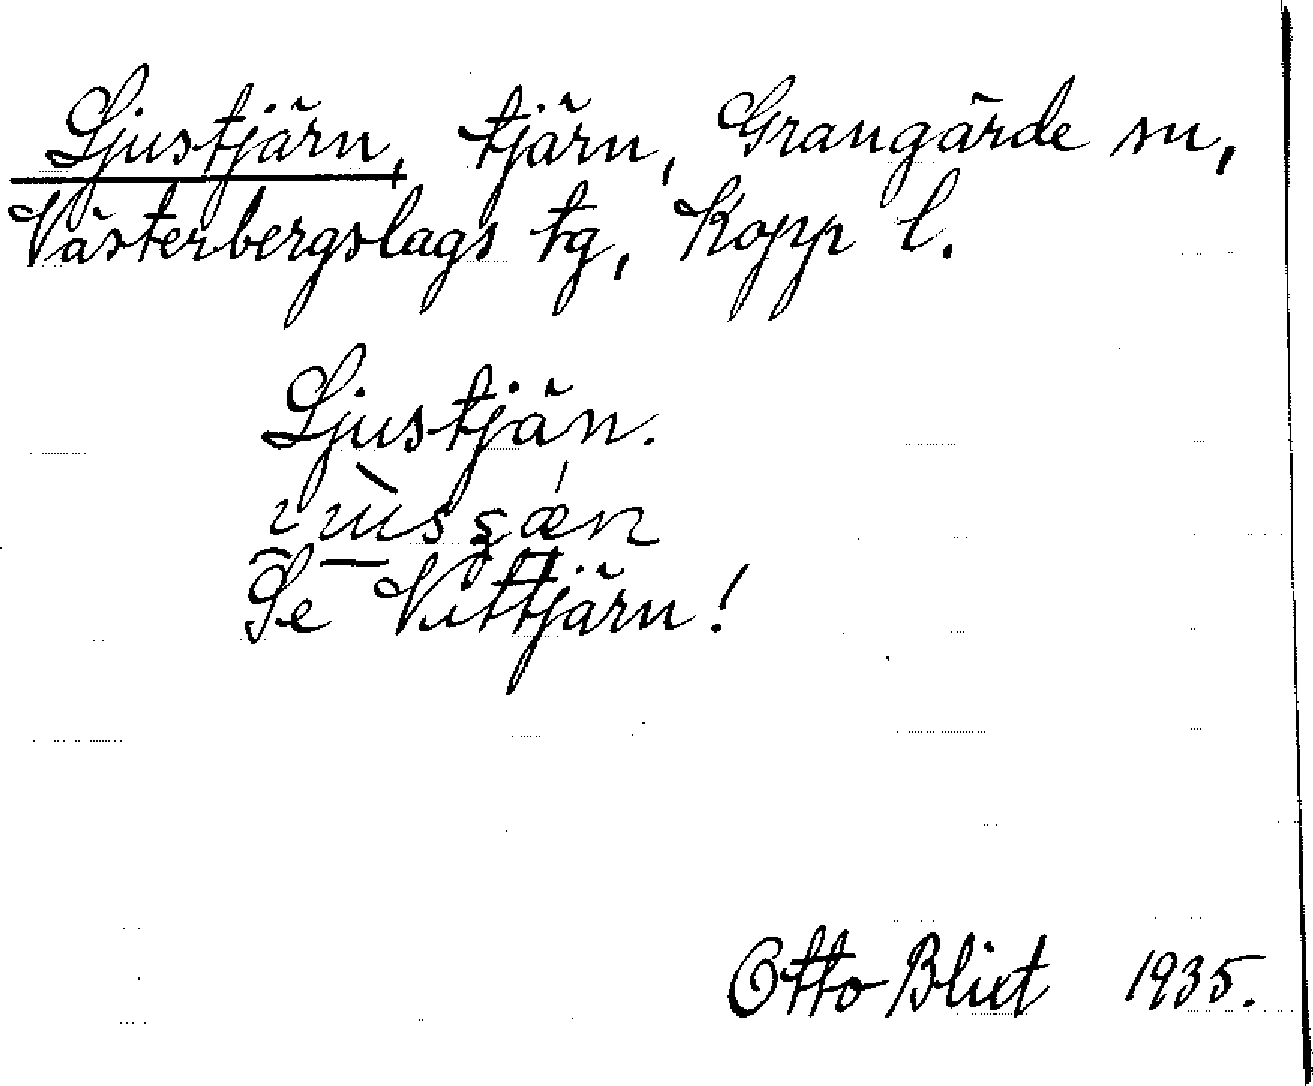 Ljustjärn, tjärn, Grangärde sn,
Västerbergslags tg, Kopp l.
Ljustjän.
Se Vittjärn!
Otto Blixt 1935.